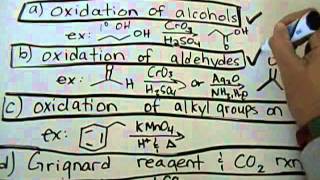 a) oxidation of alcohols ✓
ex: OH OH CrO3 H2SO4 O OH
b) oxidation of aldehydes ✓
ex: O H CrO3 H2SO4 or Ag2O NH3, H2O O
c) oxidation of alkyl groups on
ex: KMnO4 H+ & Δ
d) Grignard reagent & CO2 rxn
CO2